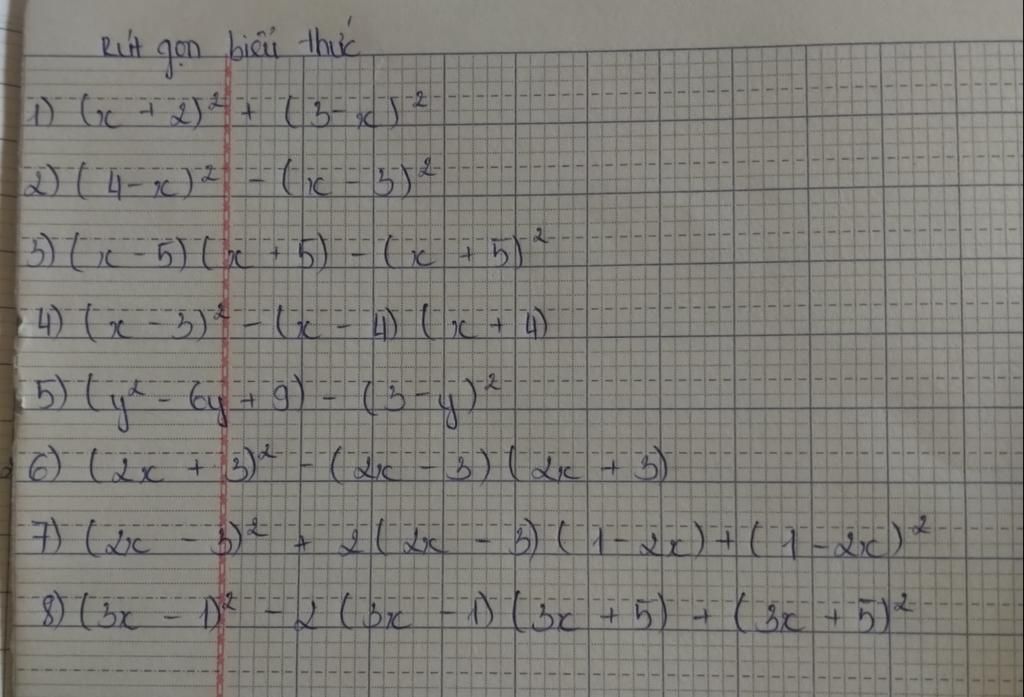 Rút gọn biểu thức
1) (x + 2)² + (3 - x)²
2) (4 - x)² - (x - 3)²
3) (x - 5) (x + 5) - (x + 5)²
4) (x - 3)² - (x - 4) (x + 4)
5) (y² - 6y + 9) - (3 - y)²
6) (2x + 3)² - (2x - 3) (2x + 3)
7) (2x - 3)² + 2 (2x - 3) (1 - 2x) + (1 - 2x)²
8) (3x - 1)² - 2 (3x - 1) (3x + 5) + (3x + 5)²